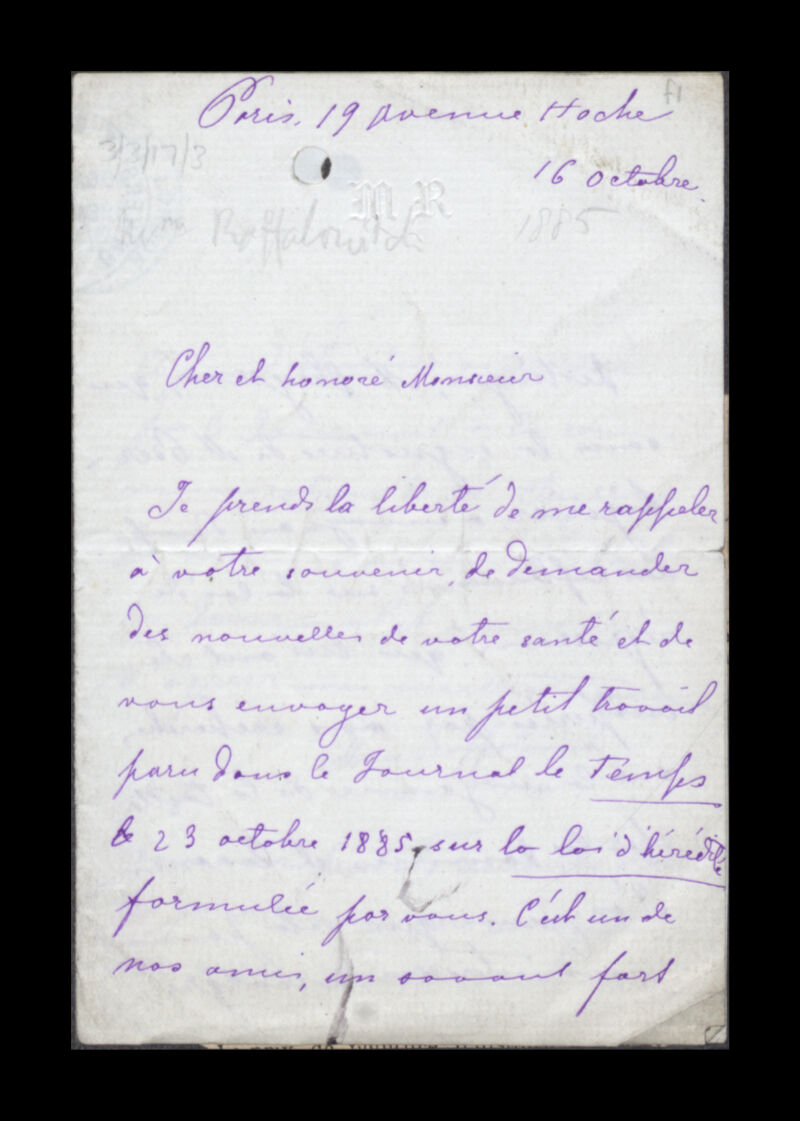 F1
Paris, 19 avenue Hoche
3/3/17/3
16 octobre.
M R
Raffalovitch 1885
Cher et honoré Monsieur
Je prends la liberté de me rappeler
à votre souvenir, de demander
des nouvelles de votre santé et de
vous envoyer un petit travail
paru dans le Journal le Temps
le 23 octobre 1885 sur la loi d'hérédité
formulée par vous. C'est un de
nos amis, un savant fort